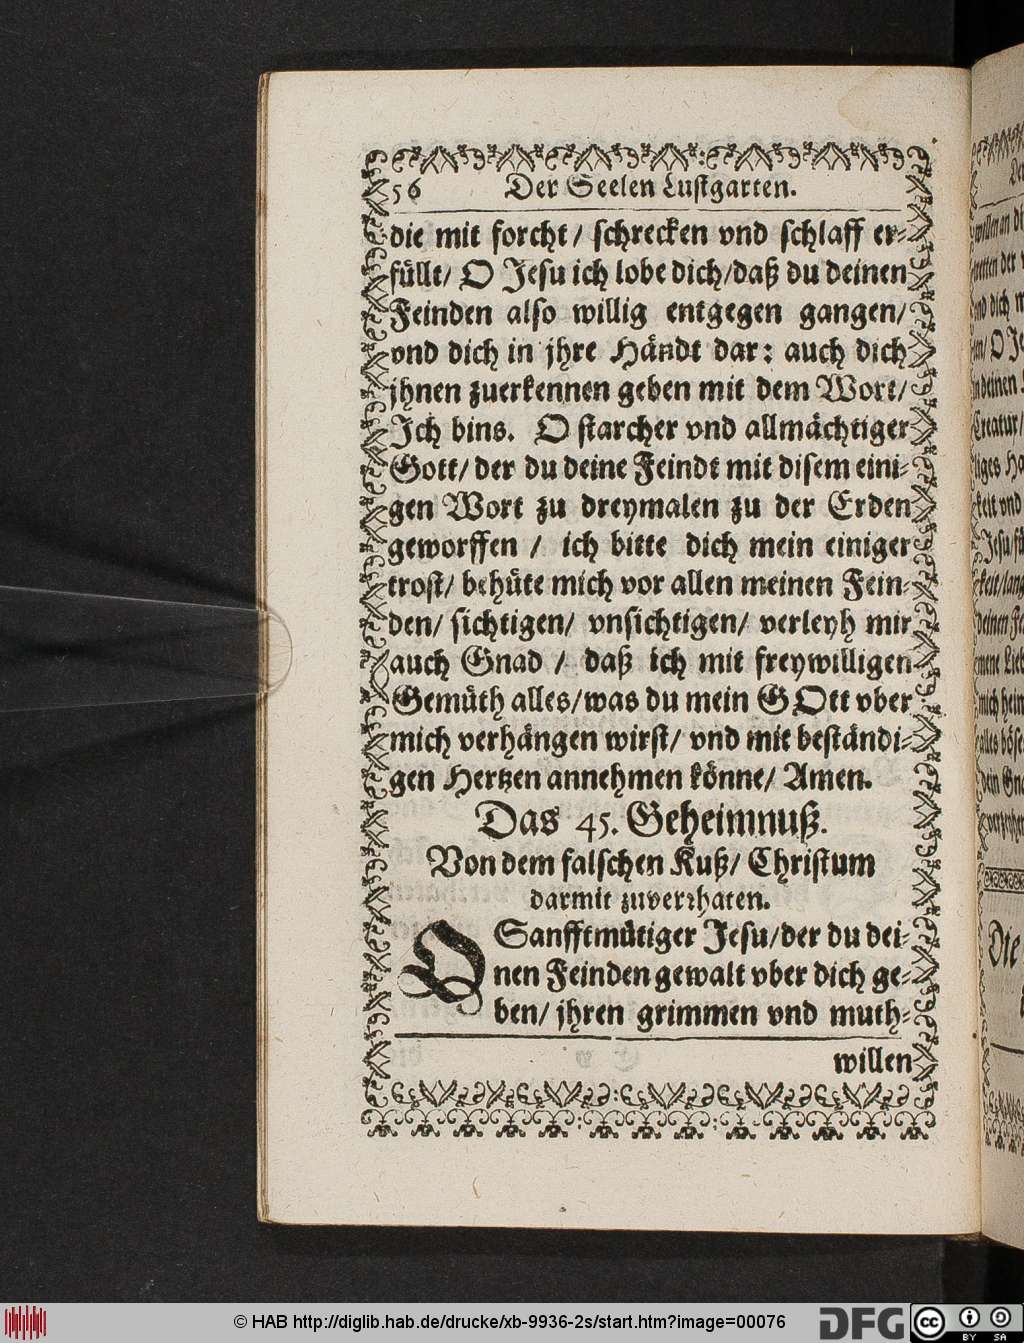 56 Der Seelen Lustgarten.
die mit forcht / schrecken vnd schlaff er-
füllt/ O Jesu ich lobe dich/daß du deinen
Feinden also willig entgegen gangen/
vnd dich in jhre Händt dar: auch dich
jhnen zuerkennen geben mit dem Wort/
Ich bins. O starcher vnd allmächtiger
Gott/ der du deine Feindt mit disem eini-
gen Wort zu dreymalen zu der Erden
geworffen / ich bitte dich mein einiger
trost/ behüte mich vor allen meinen Fein-
den/ sichtigen/ vnsichtigen/ verleyh mir
auch Gnad / daß ich mit freywilligen
Gemüth alles/was du mein GOtt vber
mich verhängen wirst/ vnd mit beständi-
gen Hertzen annehmen könne/ Amen.
Das 45. Geheimnuß.
Von dem falschen Kuß/ Christum
darmit zuverrhaten.
O Sanfftmütiger Jesu/der du dei-
nen Feinden gewalt vber dich ge-
ben/ jhren grimmen vnd muth-
willen
© HAB http://diglib.hab.de/drucke/xb-9936-2s/start.htm?image=00076
DFG
cc BY SA